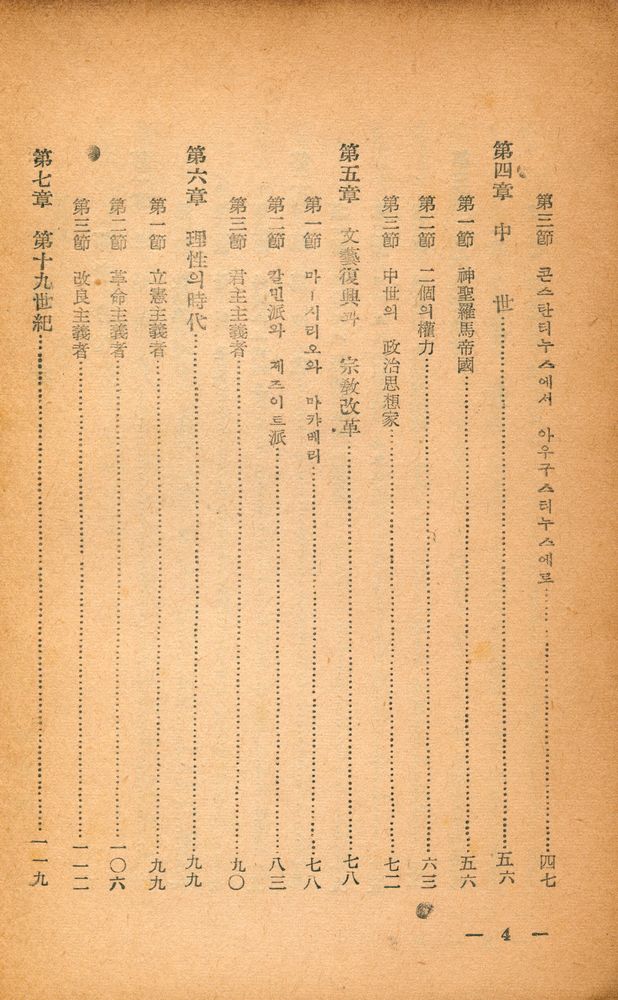 第三節 콘스탄티누스에서 아우구스티누스에로……四七
第四章 中 世……五六
第一節 神聖羅馬帝國……五六
第二節 二個의權力……六三
第三節 中世의 政治思想家……七二
第五章 文藝復興과 宗敎改革……七八
第一節 마ー시리오와 마캬베리……七八
第二節 칼빈派와 제즈이트派……八三
第三節 君主主義者……九〇
第六章 理性의時代……九九
第一節 立憲主義者……九九
第二節 革命主義者……一〇六
第三節 改良主義者……一一二
第七章 第十九世紀……一一九
— 4 —